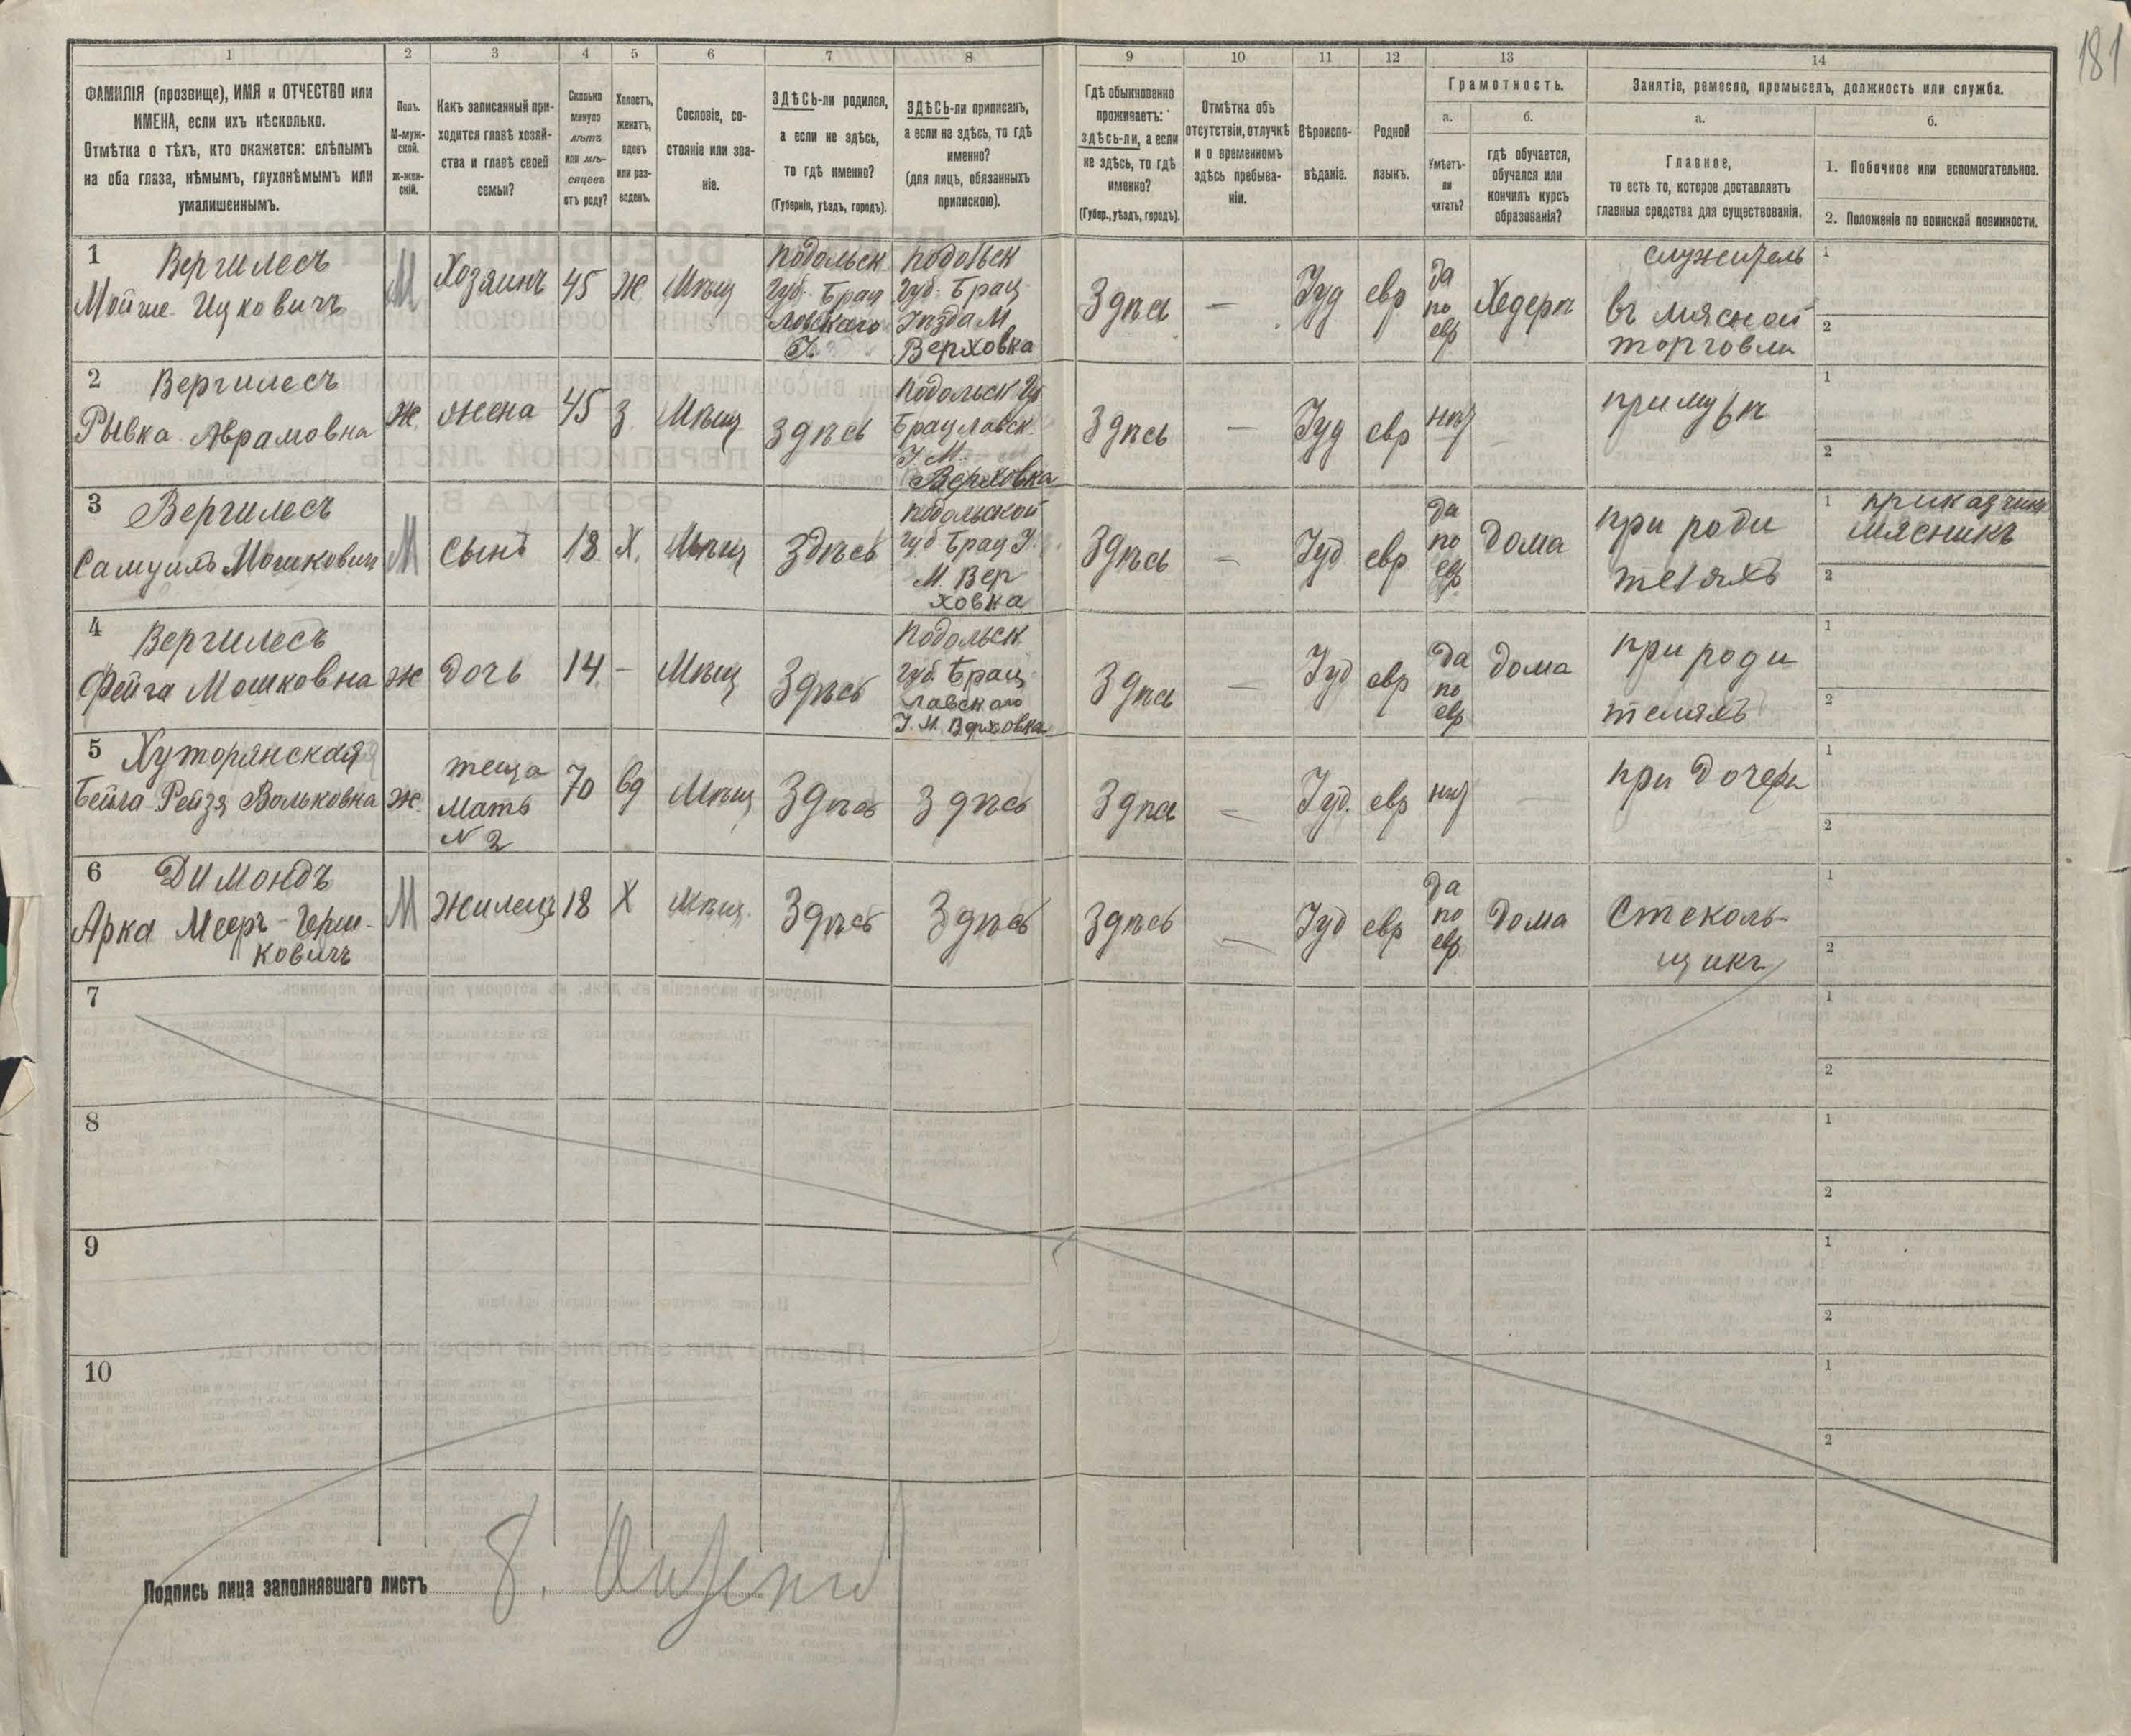 181
1
2
3
4
5
6
7
8
9
10
11
12
13
14
ФАМИЛІЯ (прозвище), ИМЯ и ОТЧЕСТВО или
ИМЕНА, если ихъ нѣсколько.
Отмѣтка о тѣхъ, кто окажется: слѣпымъ
на оба глаза, нѣмымъ, глухонѣмымъ или
умалишеннымъ.
Полъ.
М-муж-
ской.
ж-жен-
скій.
Какъ записанный при-
ходится главѣ хозяй-
ства и главѣ своей
семьи?
Сколько
минуло
лѣтъ
или мѣ-
сяцевъ
отъ роду?
Холостъ,
женатъ,
вдовъ
или раз-
веденъ.
Сословіе, со-
стояніе или зва-
ніе.
ЗДѢСЬ-ли родился,
а если не здѣсь,
то гдѣ именно?
(Губернія, уѣздъ, городъ).
ЗДѢСЬ-ли приписанъ,
а если не здѣсь, то гдѣ
именно?
(для лицъ, обязанныхъ
припискою).
Гдѣ обыкновенно
проживаетъ:
ЗДѢСЬ-ли, а если
не здѣсь, то гдѣ
именно?
(Губер., уѣздъ, городъ).
Отмѣтка объ
отсутствіи, отлучкѣ
и о временномъ
здѣсь пребыва-
ніи.
Вѣроиспо-
вѣданіе.
Родной
языкъ.
Грамотность.
а.
Умѣетъ-
ли
читать?
б.
гдѣ обучается,
обучался или
кончилъ курсъ
образованія?
Занятіе, ремесло, промыселъ, должность или служба.
а.
Главное,
то есть то, которое доставляетъ
главныя средства для существованія.
б.
1. Побочное или вспомогательное.
2. Положеніе по воинской повинности.
1 Вергилесъ
Мойше Ицковичъ
М
Хозяинъ
45
ж
Мѣщ
Подольск
Губ. Брац
лавскаго
У.
Подольск
Губ. Брац
Уѣзда М
Верховка
Здѣсь
—
Іуд
евр
да
по
евр
Хедеръ
служитель
въ мясной
торговли
1
2
2 Вергилесъ
Рывка Аврамовна
ж
жена
45
з
Мѣщ
Здѣсь
Подольск Гу
Брацлавск.
У. М.
Верховка
Здѣсь
—
Іуд
евр
нѣт
при мужѣ
1
2
3 Вергилесъ
Самуилъ Мошковичъ
М
сынъ
18
Х.
Мѣщ
Здѣсь
Подольской
губ Брац У.
М. Вер
ховка
Здѣсь
—
Іуд
евр
да
по
евр
Дома
при роди
теляхъ
1 приказчикъ
мясникъ
2
4 Вергилесъ
Фейга Мошковна
ж
дочь
14
—
Мѣщ
Здѣсь
Подольск
губ. Брац
лавскаго
У. М. Верховка
Здѣсь
—
Іуд
евр
да
по
евр
дома
при роди
теляхъ
1
2
5 Хуторянская
Бейла Рейзя Вольковна
ж.
теща
мать
N 2
70
вд
Мѣщ
Здѣсь
Здѣсь
Здѣсь
—
Іуд.
евр
нѣт
—
при дочери
1
2
6 Димондъ
Арка Мееръ-Герш-
ковичъ
М
жилецъ
18
Х
Мѣщ.
Здѣсь
Здѣсь
Здѣсь
—
Іуд
евр
да
по
евр
Дома
Стеколь-
щикъ
1
2
7
1
2
8
1
2
9
1
2
10
1
2
Подпись лица заполнявшаго листъ